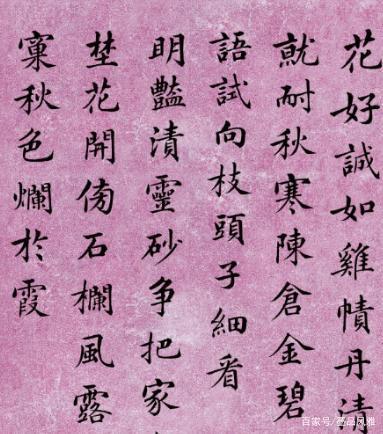 花好誠如雞幘丹清
就耐秋寒陳倉金碧
語試向枝頭子細看
明豔漬靈砂争把家
埜花開傍石欄風露
窠秋色爛於霞
百家号/